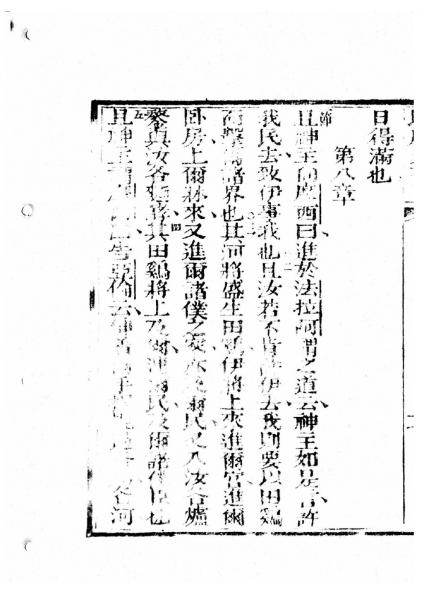 日得滿也
第八章
節 且神主謂摩西曰進於法拉阿謂之道云神主如是言許
我民去致伊事我也且汝若不肯許伊去我則要以田鷄
而擊爾諸界也其河將盛生田鷄伊將上來進爾宮進爾
臥房上爾牀來又進爾諸僕之家亦及爾民又入汝各爐
又汝各其田鷄將上及爾連爾民及爾諸僕也
五 且神主謂摩西曰言亞倫云伸着各河